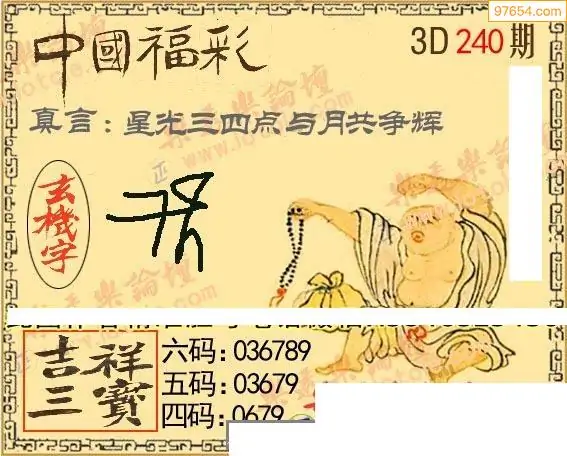 97654.com
中國福彩
3D 240 期
真言：星光三四点与月共争辉
玄機字
吉祥三寶
六码：036789
五码：03679
四码：0679